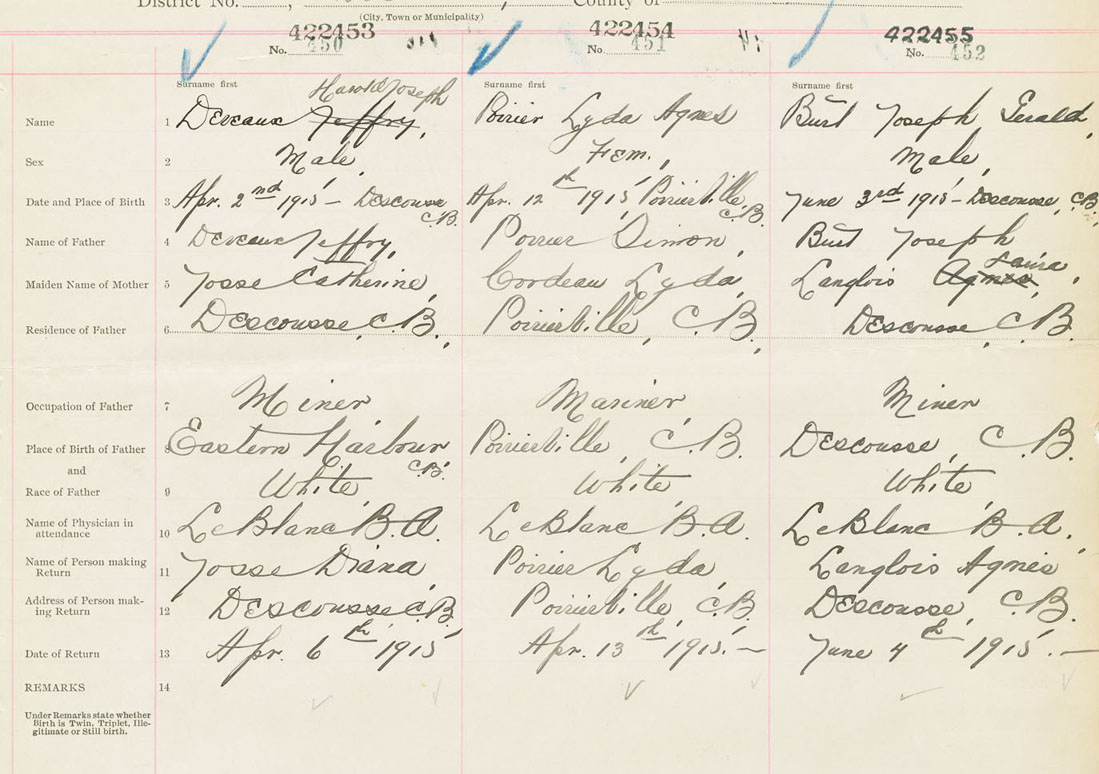 District No. , , County of
(City, Town or Municipality)
422453 422454 422455
No. 450 No. 451 No. 452
Surname first Surname first Surname first
Harold Joseph
Name 1 Deveaux Jeffry, Poirier Lyda Agnes Burt Joseph Gerald,
Sex 2 Male, Fem., Male,
Date and Place of Birth 3 Apr. 2nd 1915 – Descousse C.B. Apr. 12th 1915 Poirierville, C.B. June 3rd 1915 – Descousse, C.B.
Name of Father 4 Deveaux Jeffry, Poirier Simon, Burt Joseph
Laura
Maiden Name of Mother 5 Josse Catherine, Cordeau Lyda, Langlois Agnes,
Residence of Father 6 Descousse, C.B., Poirierville, C.B., Descousse, C.B.,
Occupation of Father 7 Miner, Mariner, Miner
Place of Birth of Father 8 Eastern Harbour C.B. Poirierville, C.B. Descousse, C.B.
and
Race of Father 9 White, White, White,
Name of Physician in
attendance 10 LeBlanc B.A. LeBlanc B.A. LeBlanc B.A.
Name of Person making
Return 11 Josse Diana, Poirier Lyda, Langlois Agnes
Address of Person mak-
ing Return 12 Descousse C.B. Poirierville, C.B. Descousse, C.B.
Date of Return 13 Apr. 6th 1915 Apr. 13th 1915. — June 4th 1915. —
REMARKS 14
Under Remarks state whether
Birth is Twin, Triplet, Ille-
gitimate or Still birth.